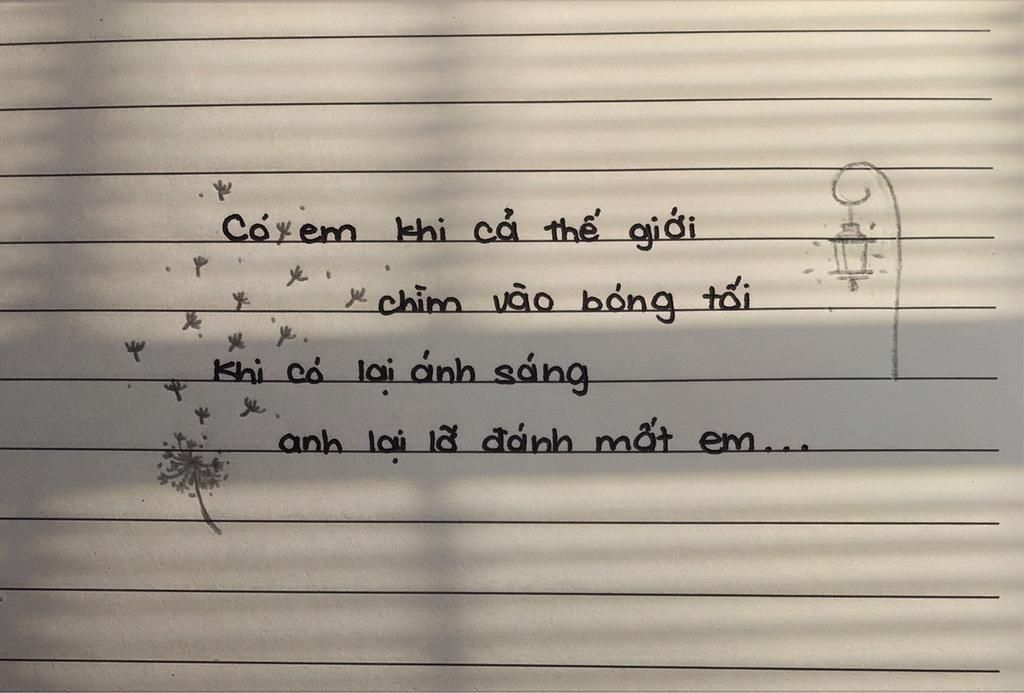 Có em khi cả thế giới
chìm vào bóng tối
Khi có lại ánh sáng
anh lại lỡ đánh mất em...